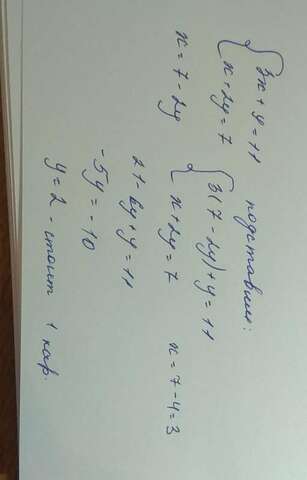 3x + y = 11
x + 2y = 7
x = 7 - 2y
подставим:
3(7 - 2y) + y = 11
x + 2y = 7
21 - 6y + y = 11
-5y = -10
y = 2 - стоит 1 кар.
x = 7 - 4 = 3